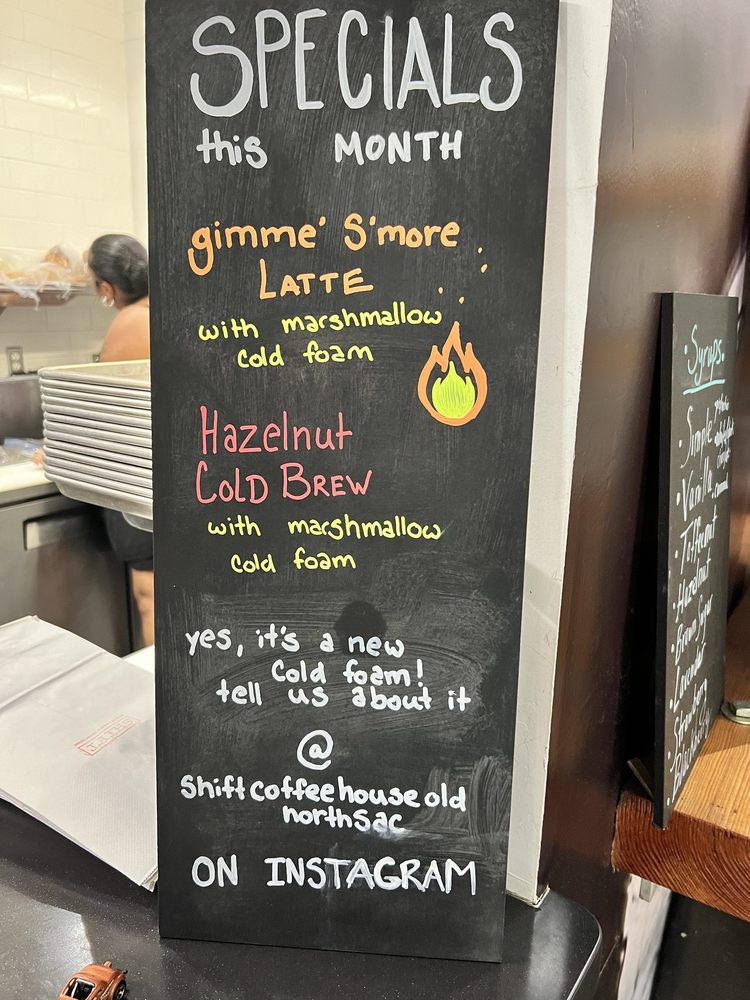 SPECIALS
this MONTH
gimme' S'more
LATTE
with marshmallow
cold foam
Hazelnut
COLD BREW
with marshmallow
cold foam
yes, it's a new
cold foam!
tell us about it
@
Shiftcoffeehouseold
northsac
ON INSTAGRAM
Syrups
Simple
Vanilla
Toffeenut
Hazelnut
Brown Sugar
Lavender
Strawberry